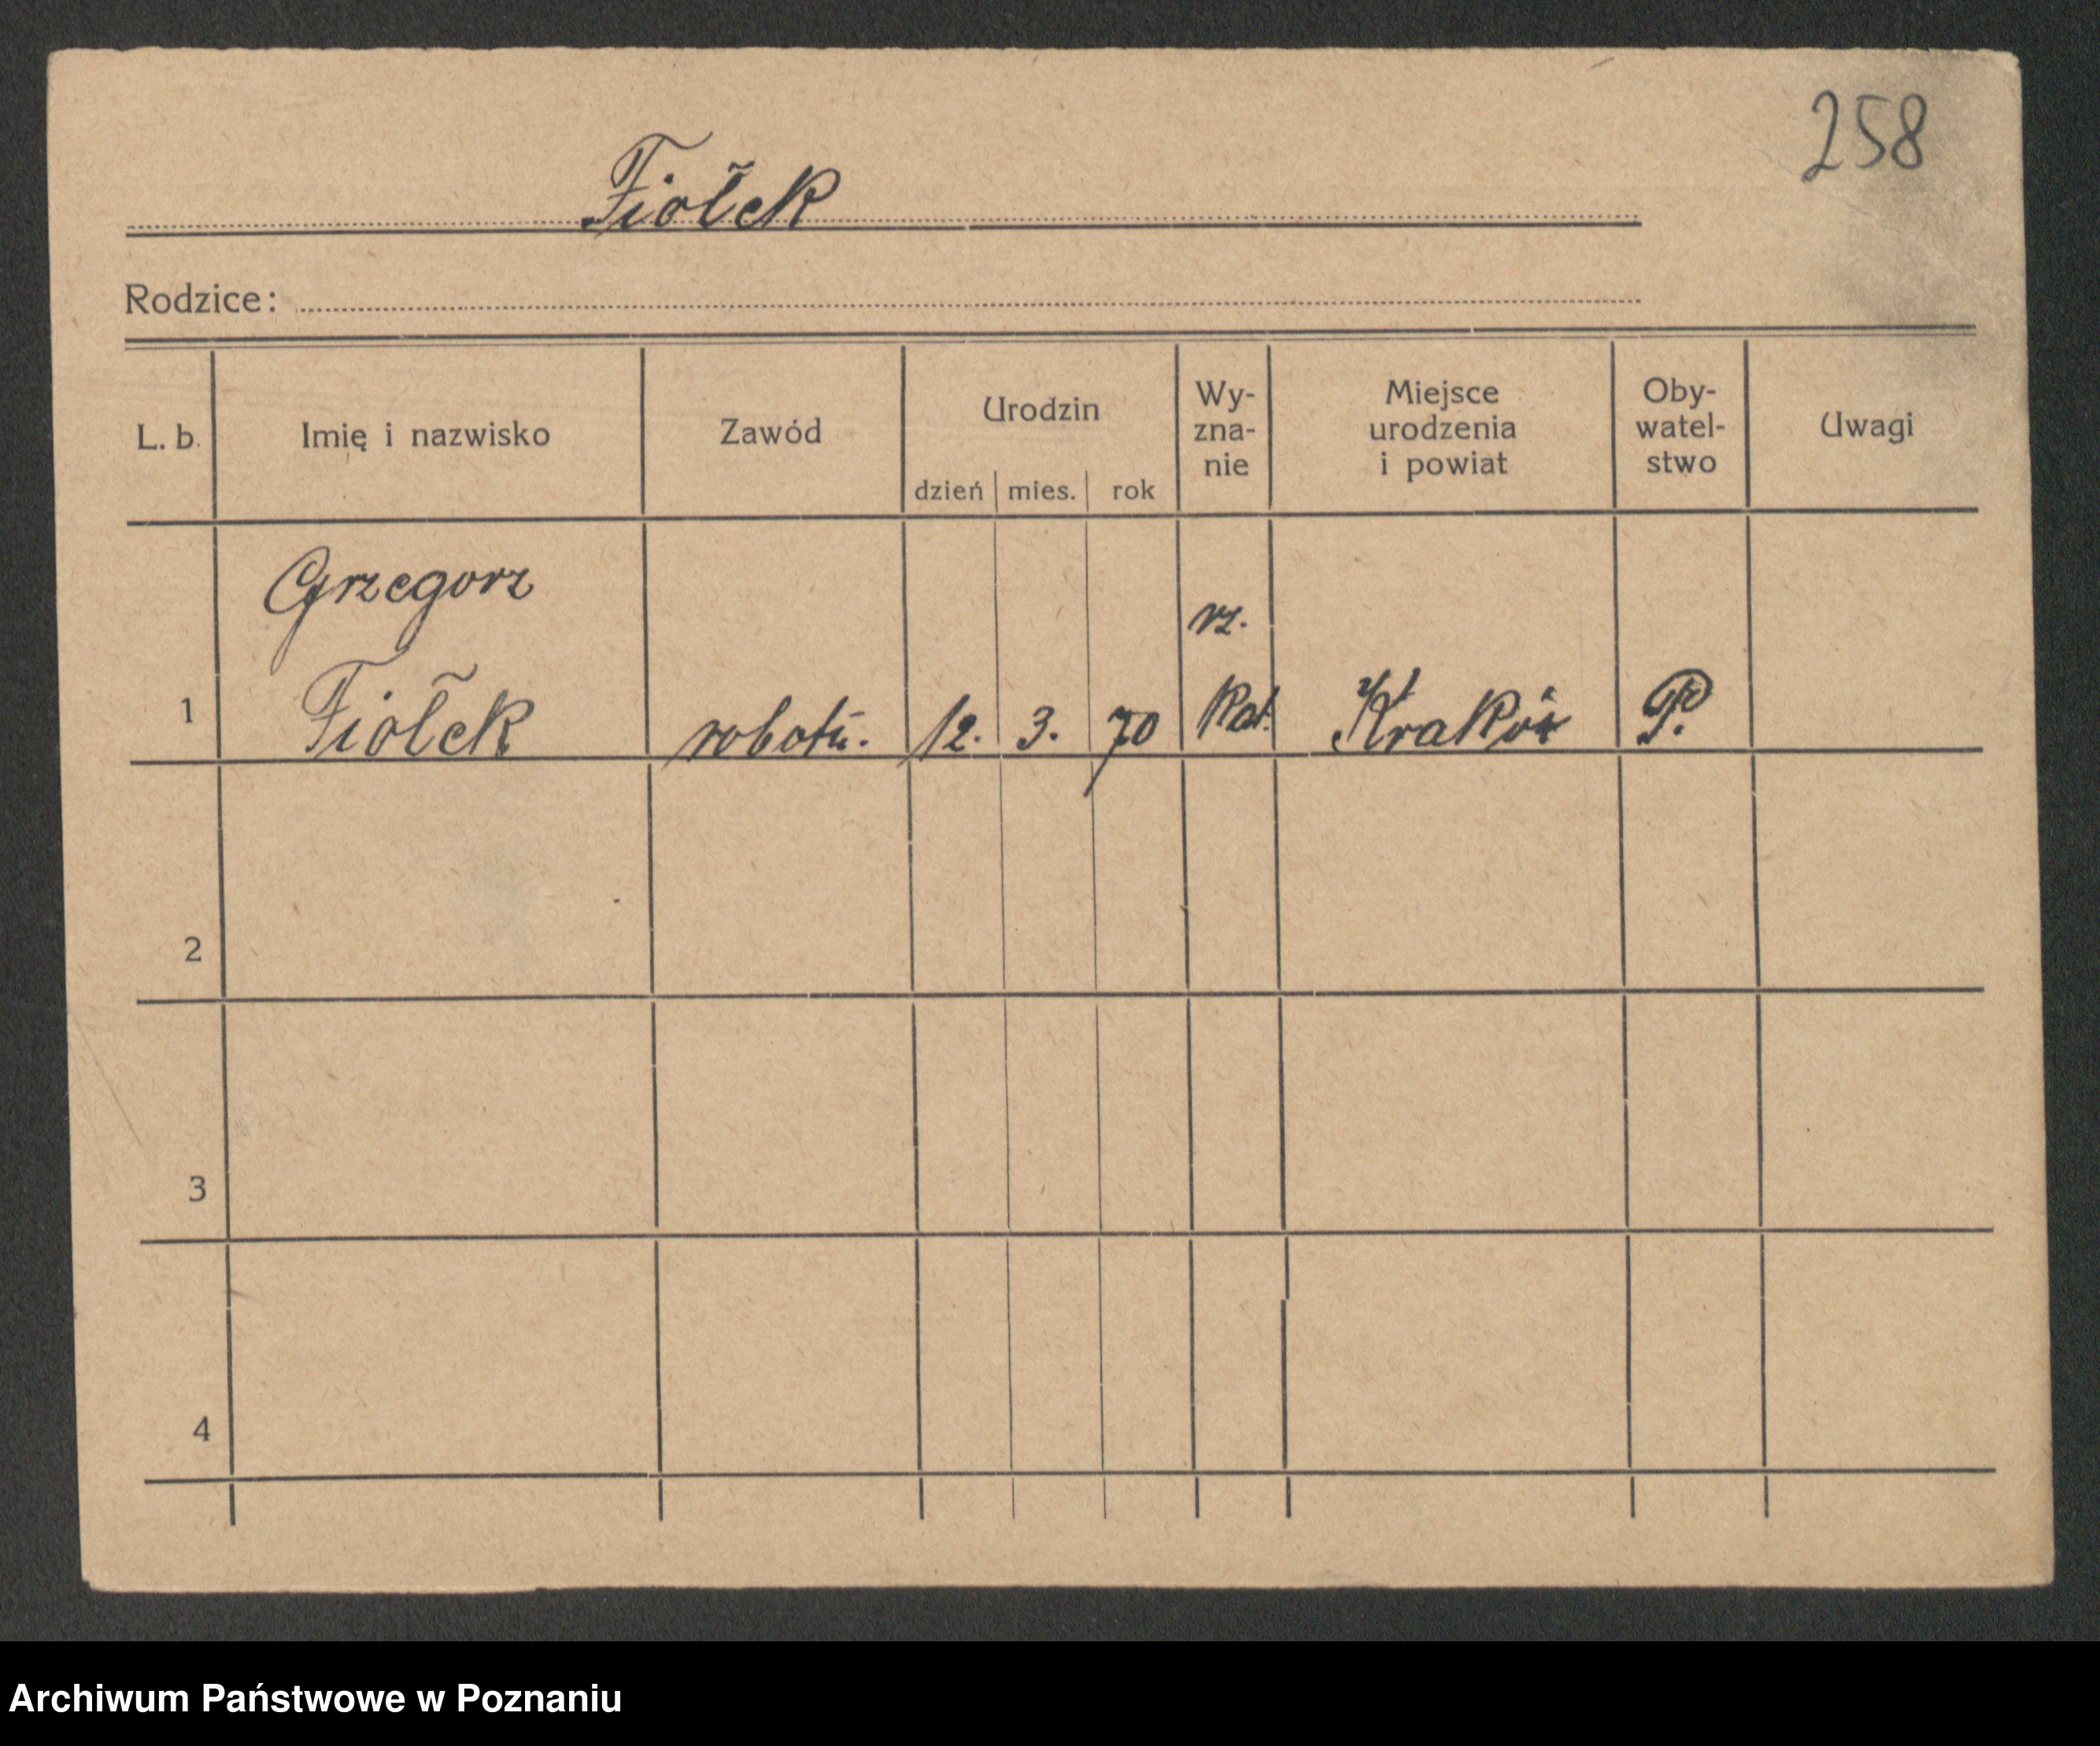 258
Fiołek
Rodzice:
L. b. Imię i nazwisko Zawód Urodzin dzień mies. rok Wy-zna-nie Miejsce urodzenia i powiat Oby-watel-stwo Uwagi
Grzegorz rz.
1 Fiołek robotn. 12. 3. 70 kat. Kraków P.
2
3
4
Archiwum Państwowe w Poznaniu